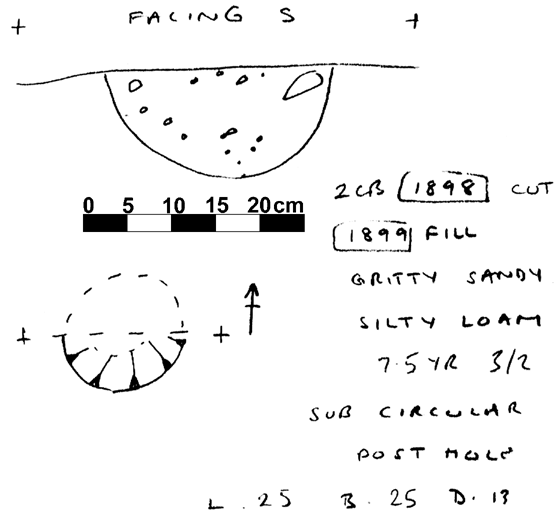 FACING S
2CB 1898 CUT
0 5 10 15 20 cm
1899 FILL
GRITTY SANDY
SILTY LOAM
7.5 YR 3/2
SUB CIRCULAR
POST HOLE
L. 25 B. 25 D. 13